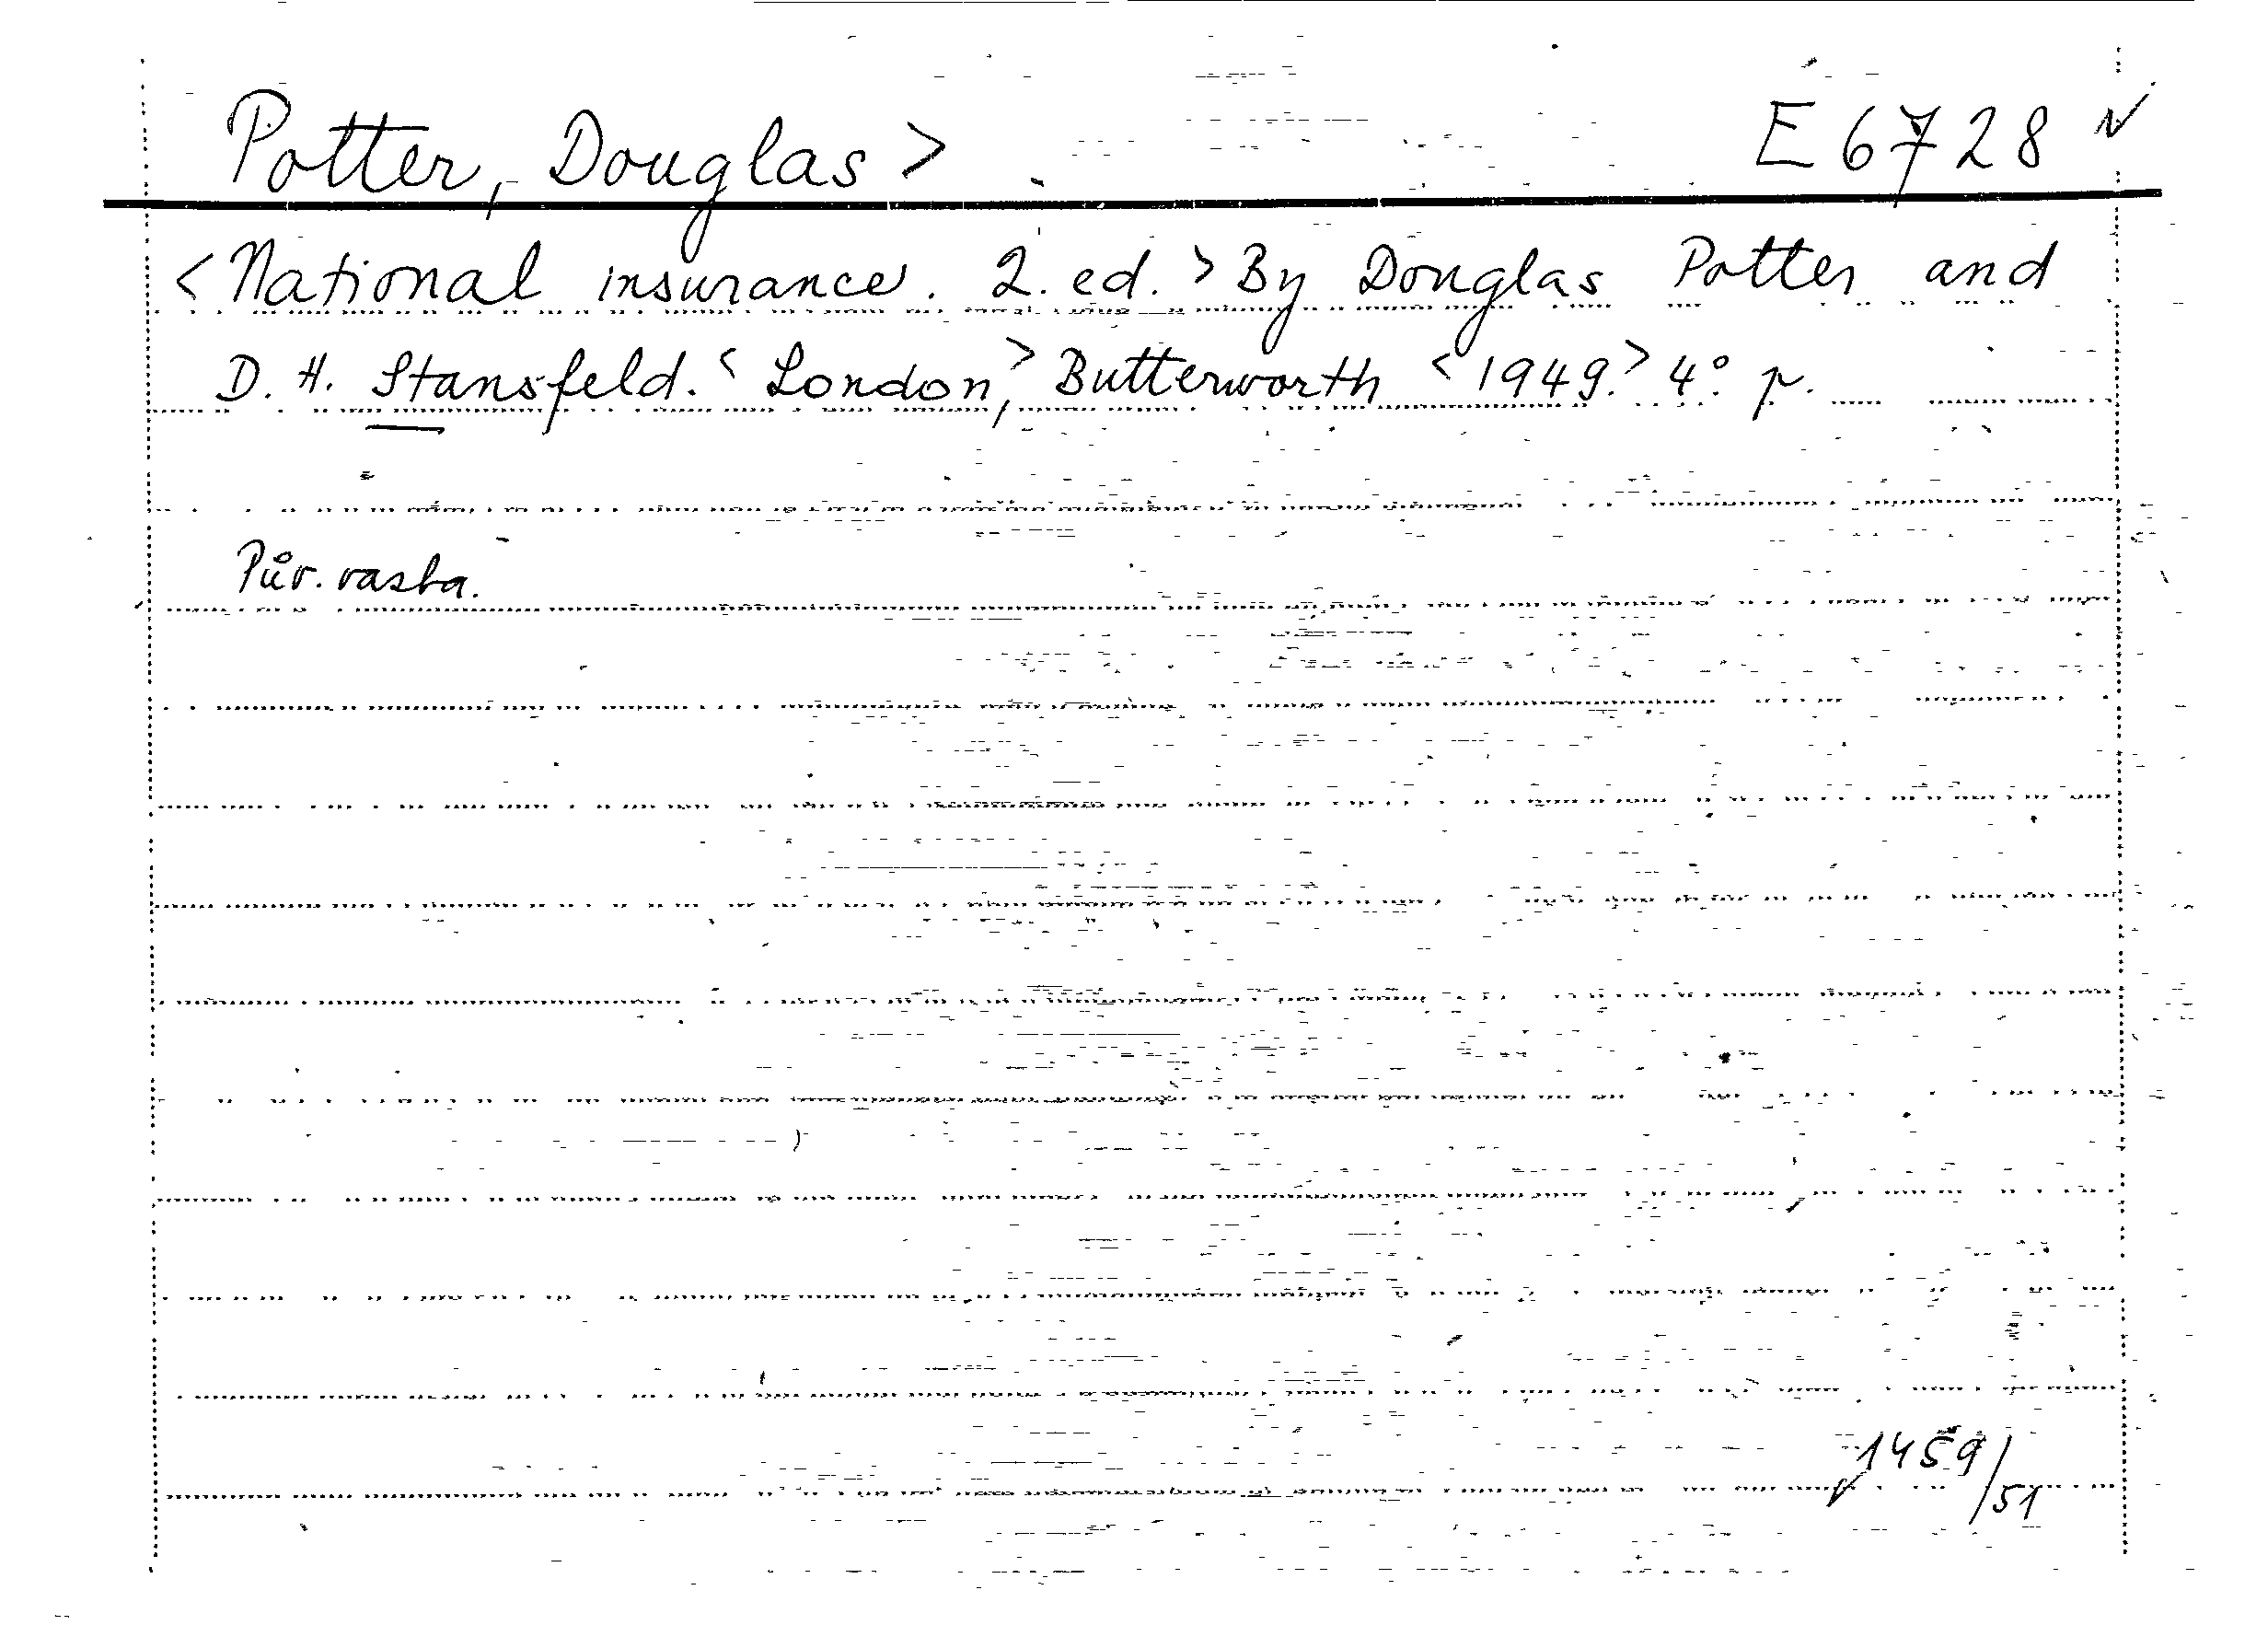 Potter, Douglas > E 6728
<National insurance. 2. ed.> By Douglas Potter and
D. H. Stansfeld. <London,> Butterworth <1949.> 4° p.
Pův. vazba.
1459/51